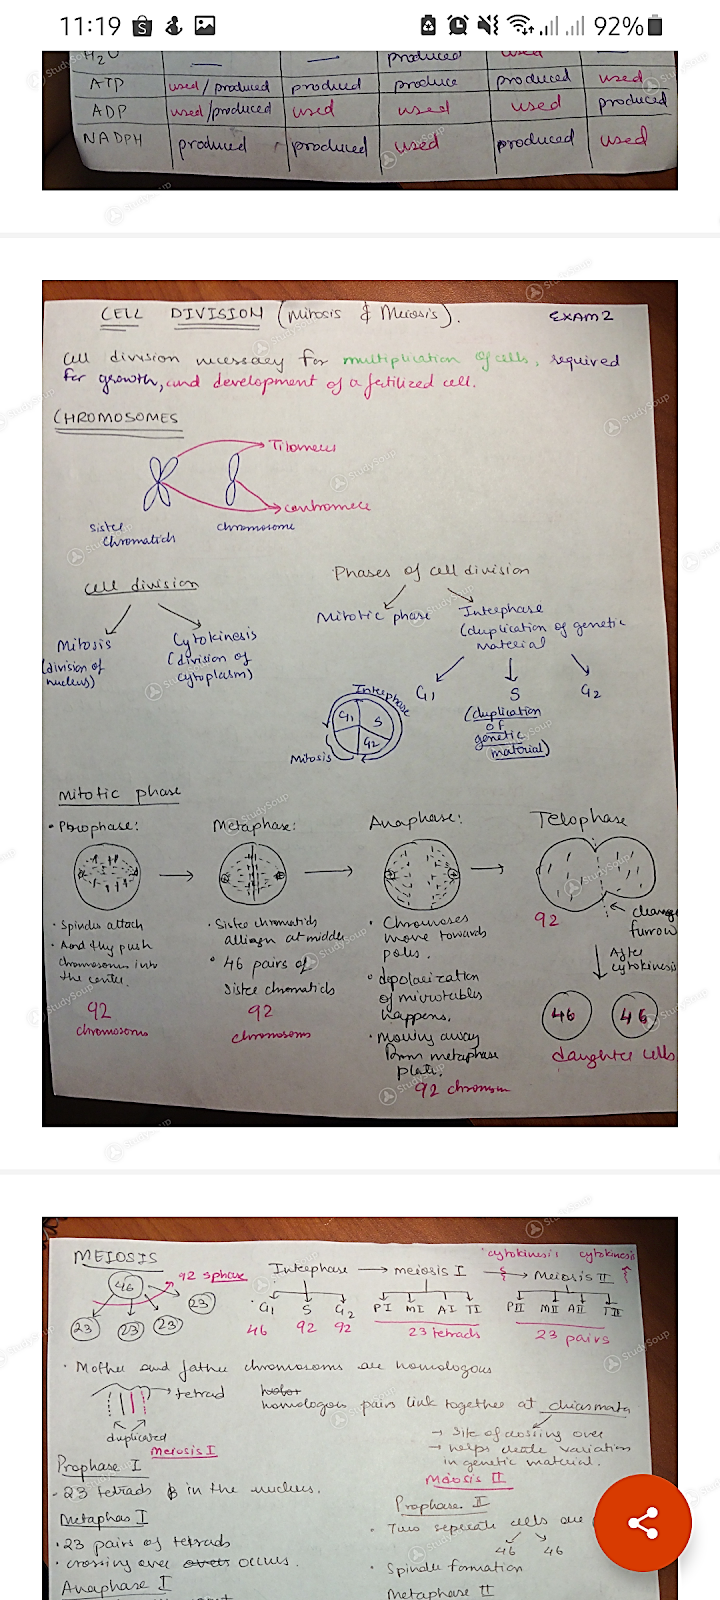 11:19
92%
H2O — — produced used —
ATP used/produced produced produce produced used
ADP used/produced used used used produced
NADPH produced produced used produced used
CELL DIVISION (Mitosis & Meiosis). EXAM 2
Cell division necessary for multiplication of cells, required
for growth, and development of a fertilized cell.
CHROMOSOMES
Tilomeres
centromere
Sister chromosome
Chromatids
Phases of cell division
cell division
Mitotic phase Interphase
(duplication of genetic
material
Mitosis Cytokinesis
(division of (division of
nucleus) cytoplasm)
G1 S G2
(duplication
of
genetic
material)
Interphase
G1 S
G2
Mitosis
Mitotic phase
• Prophase: Metaphase: Anaphase: Telophase
• Spindles attach
• And they push
chromosomes into
the center.
92
chromosoms
• Sister chromatids
alliagn at middle
• 46 pairs of
sister chromatids
92
chromosoms
• Chromoses
move towards
poles.
• depolarization
of microtubles
happens.
• Moving away
from metaphase
plate.
92 chromosom
92
cleavage
furrow
After
cytokinesis
46 46
daughter cells
MEIOSIS
46
92 Sphase
23 23 23 23
cytokinesis cytokinesis
Interphase → meiosis I → Meiosis II
G1 S G2 PI MI AI TI PII MII AII TII
46 92 92 23 tetrads 23 pairs
• Mother and father chromosoms are homologous
tetrad
homologous pairs link together at chiasmata
duplicated
→ Site of crossing over
→ helps create variation
in genetic material.
Meiosis I
Prophase I
- 23 tetrads in the nucleus.
Metaphas I
• 23 pairs of tetrads
• crossing over occurs.
Anaphase I
Meiosis II
Prophase II
• Two seperate cells are
46 46
• Spindle formation
Metaphase II
StudySoup